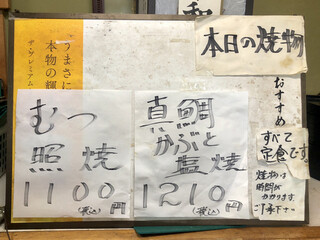 本日の焼物
おすすめ
すべて
定食です
焼物は
時間が
かかります
ご了承下さい
真鯛
かぶと
塩焼
1210円
(税込)
むつ
照焼
1100円
(税込)
うまさに
本物の輝
ザ・プレミアム